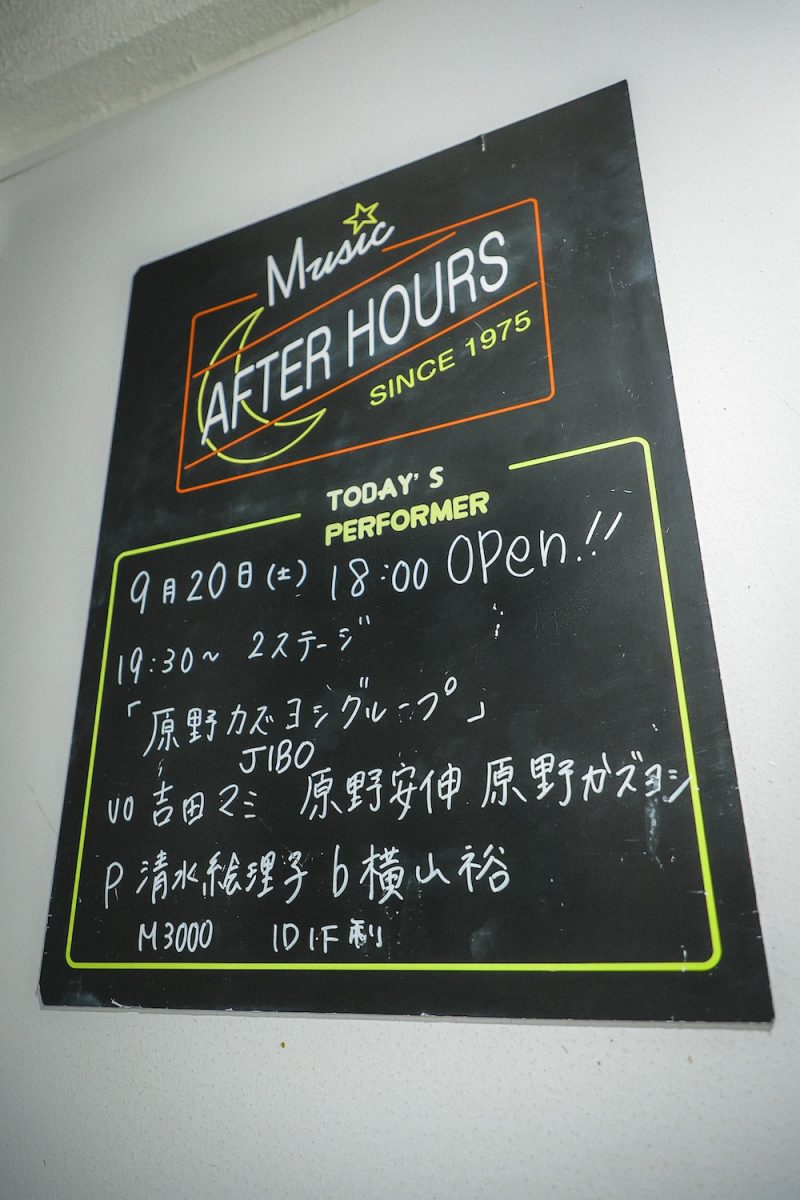 Music
AFTER HOURS
SINCE 1975
TODAY'S
PERFORMER
9月20日(土) 18:00 OPen!!
19:30~ 2ステージ
「原野カズヨシグループ」
JIBO
vo 吉田マミ 原野安伸 原野カズヨシ
P 清水絵理子 b 横山裕
M3000 1D1F制